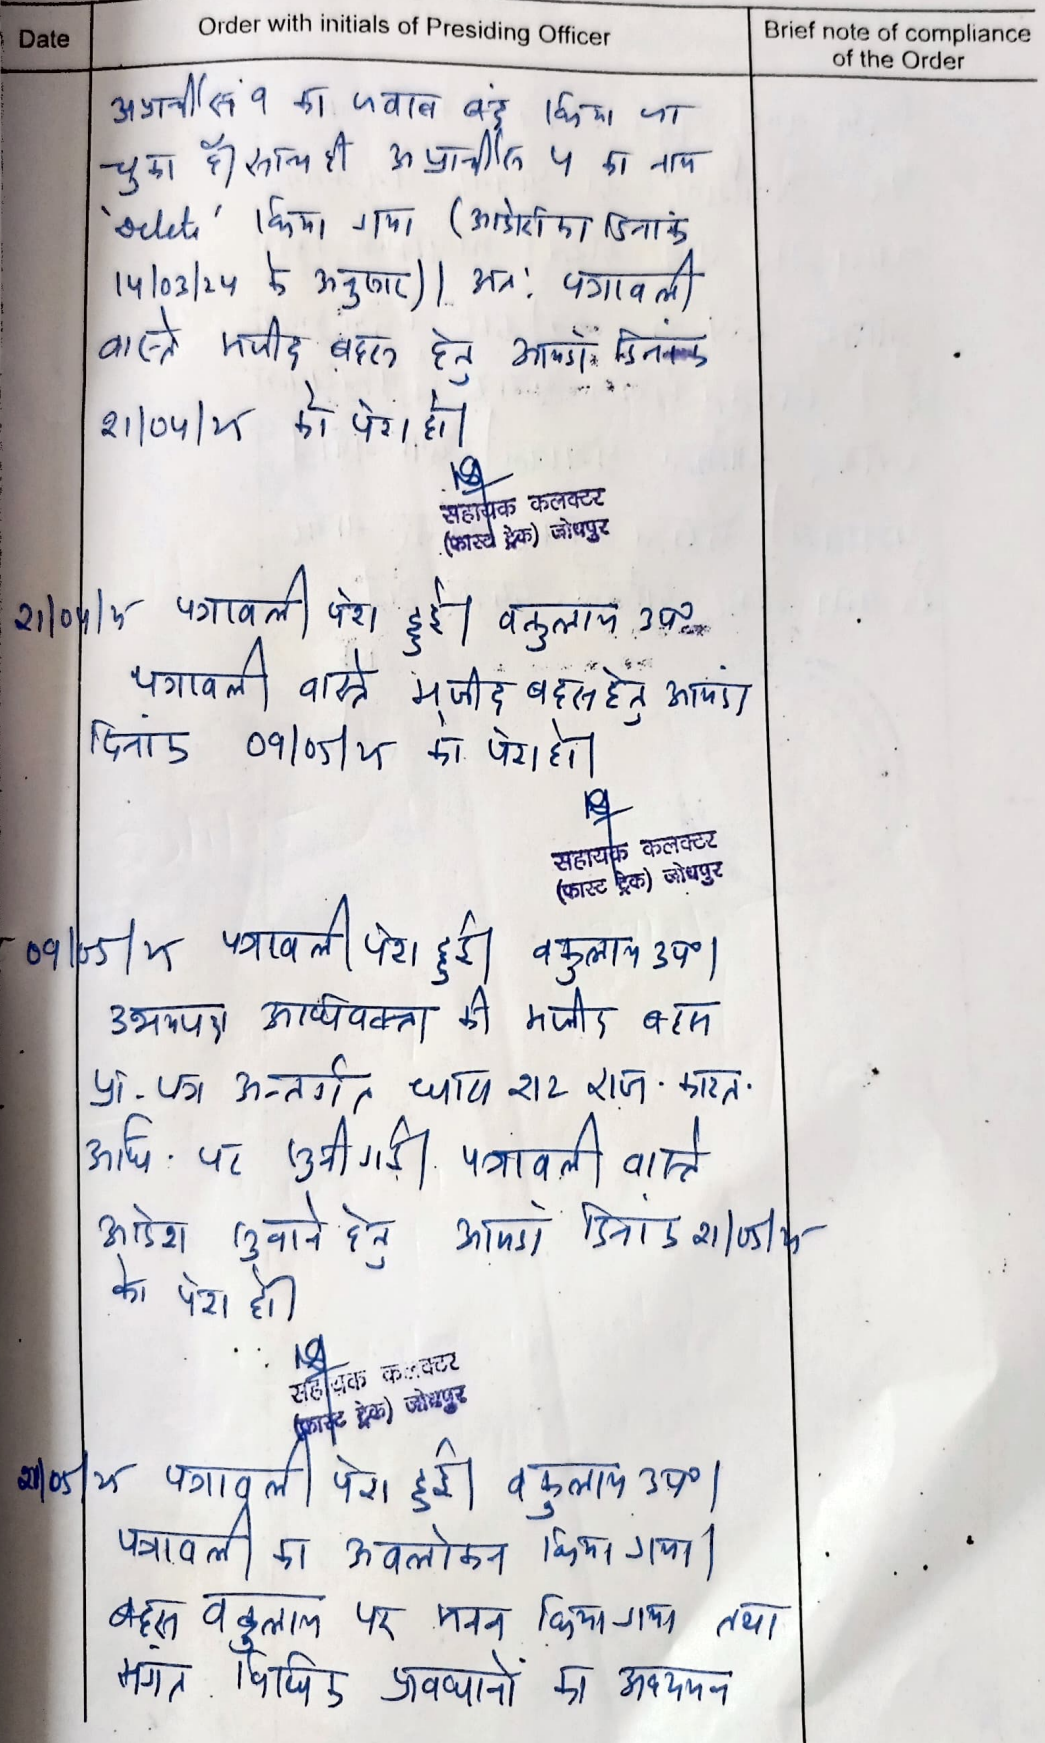 Date
Order with initials of Presiding Officer
Brief note of compliance
of the Order
अप्रार्थी सं 9 का जवाब बंद किया जा
चुका है। साथ ही अप्रार्थी सं 4 का नाम
'Delete' किया गया (आदेशिका दिनांक
14/03/24 के अनुसार)। अतः पत्रावली
वास्ते मजीद बहस हेतु आयंदा दिनांक
21/04/25 को पेश हो।
सहायक कलक्टर
(फास्ट ट्रेक) जोधपुर
21/04/25 पत्रावली पेश हुई। वकुलाय उप०
पत्रावली वास्ते मजीद बहस हेतु आयंदा
दिनांक 09/05/25 को पेश हो।
सहायक कलक्टर
(फास्ट ट्रेक) जोधपुर
09/05/25 पत्रावली पेश हुई। वकुलाय उप०।
उभयपक्ष अधिवक्ता की मजीद बहस
प्रा. पत्र अन्तर्गत धारा 212 राज. काश्त.
अधि. पर सुनी गई। पत्रावली वास्ते
आदेश सुनाने हेतु आयंदा दिनांक 21/05/25
को पेश हो।
सहायक कलक्टर
(फास्ट ट्रेक) जोधपुर
21/05/25 पत्रावली पेश हुई। वकुलाय उप०।
पत्रावली का अवलोकन किया गया।
बहस वकुलाय पर मनन किया गया तथा
विधिक प्रावधानों का अध्ययन